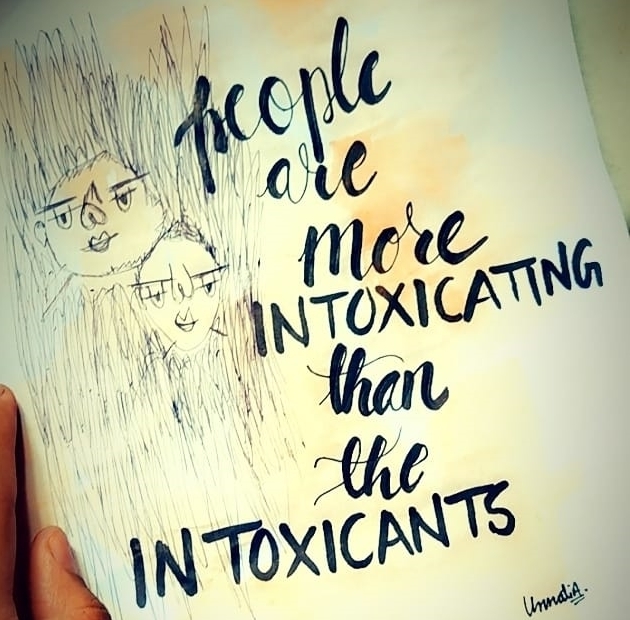 people
are
more
INTOXICATING
than
the
INTOXICANTS
UnnatiA.